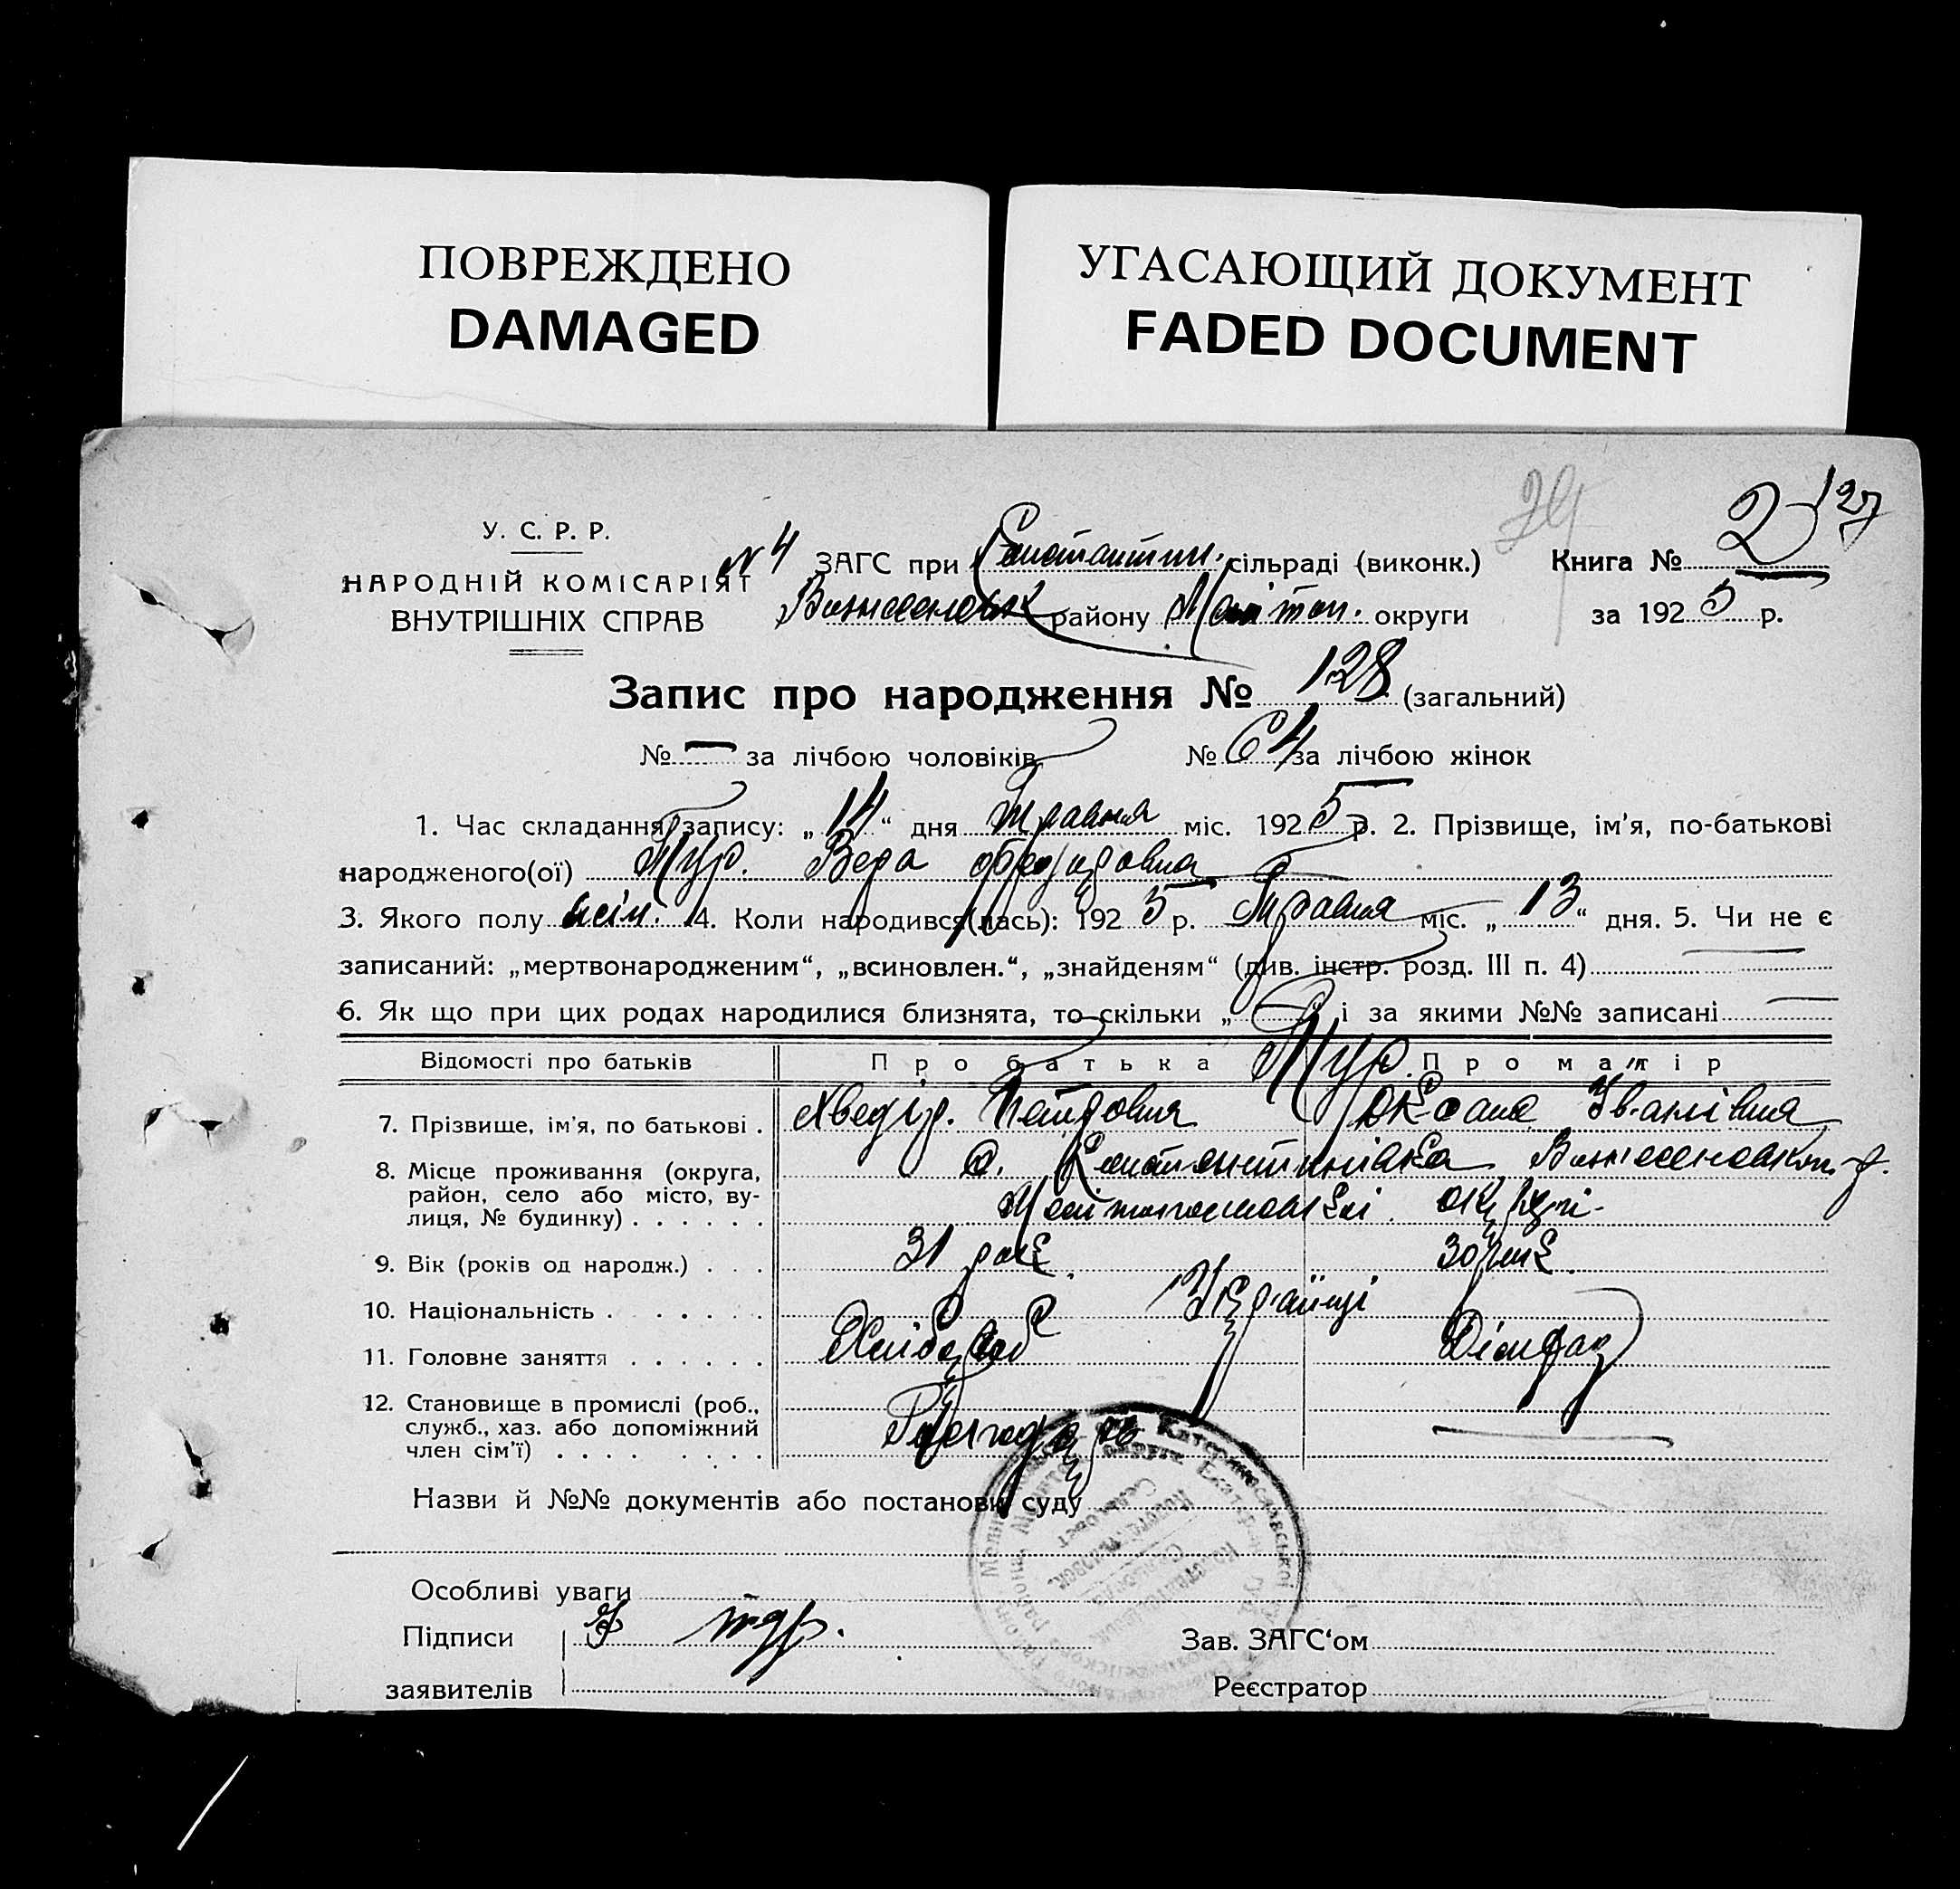 ПОВРЕЖДЕНО
DAMAGED
УГАСАЮЩИЙ ДОКУМЕНТ
FADED DOCUMENT
127
У. С. Р. Р.
НАРОДНІЙ КОМІСАРІЯТ
ВНУТРІШНІХ СПРАВ
№ 4 ЗАГС при Константин. сільраді (виконк.)
районy округи
Книга № 2
за 1925 р.
Запис про народження № 128 (загальний)
№ — за лічбою чоловіків № 64 за лічбою жінок
1. Час складання запису: „14“ дня Травня міс. 1925 р. 2. Прізвище, ім'я, по-батькові
народженого(ої) Тур. Вера
3. Якого полу жін. 4. Коли народився(лась): 1925 р. Травня міс. „13“ дня. 5. Чи не є
записаний: „мертвонародженим“, „всиновлен.“, „знайденям“ (див. інстр. розд. III п. 4) —
6. Як що при цих родах народилися близнята, то скільки „—“ і за якими №№ записані —
Відомості про батьків Про батька Тур. Про матір
7. Прізвище, ім'я, по батькові . Хведір. Оксана Іванівна
8. Місце проживання (округа, с. Константинівка
район, село або місто, ву- Мелітопольської округи
лиця, № будинку) . . . . . .
9. Вік (років од народж.) . . . 31 рік 30 рік.
10. Національність . . . . . . . Українці
11. Головне заняття . . . . . . Хлібороб
12. Становище в промислі (роб.,
служб., хаз. або допоміжний
член сім'ї) . . . . . . . . —
Назви й №№ документів або постанови суду
Особливі уваги
Підписи Тур.
заявителів
Зав. ЗАГС'ом
Реєстратор